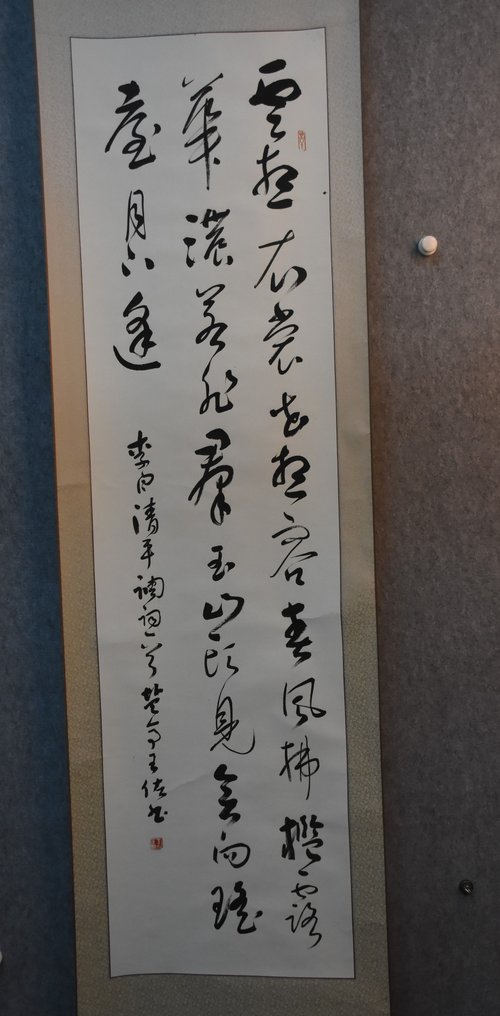 雲想衣裳花想容春風拂檻露
華濃若非群玉山頭見會向瑤
臺月下逢
李白清平調詞一首 王佐書